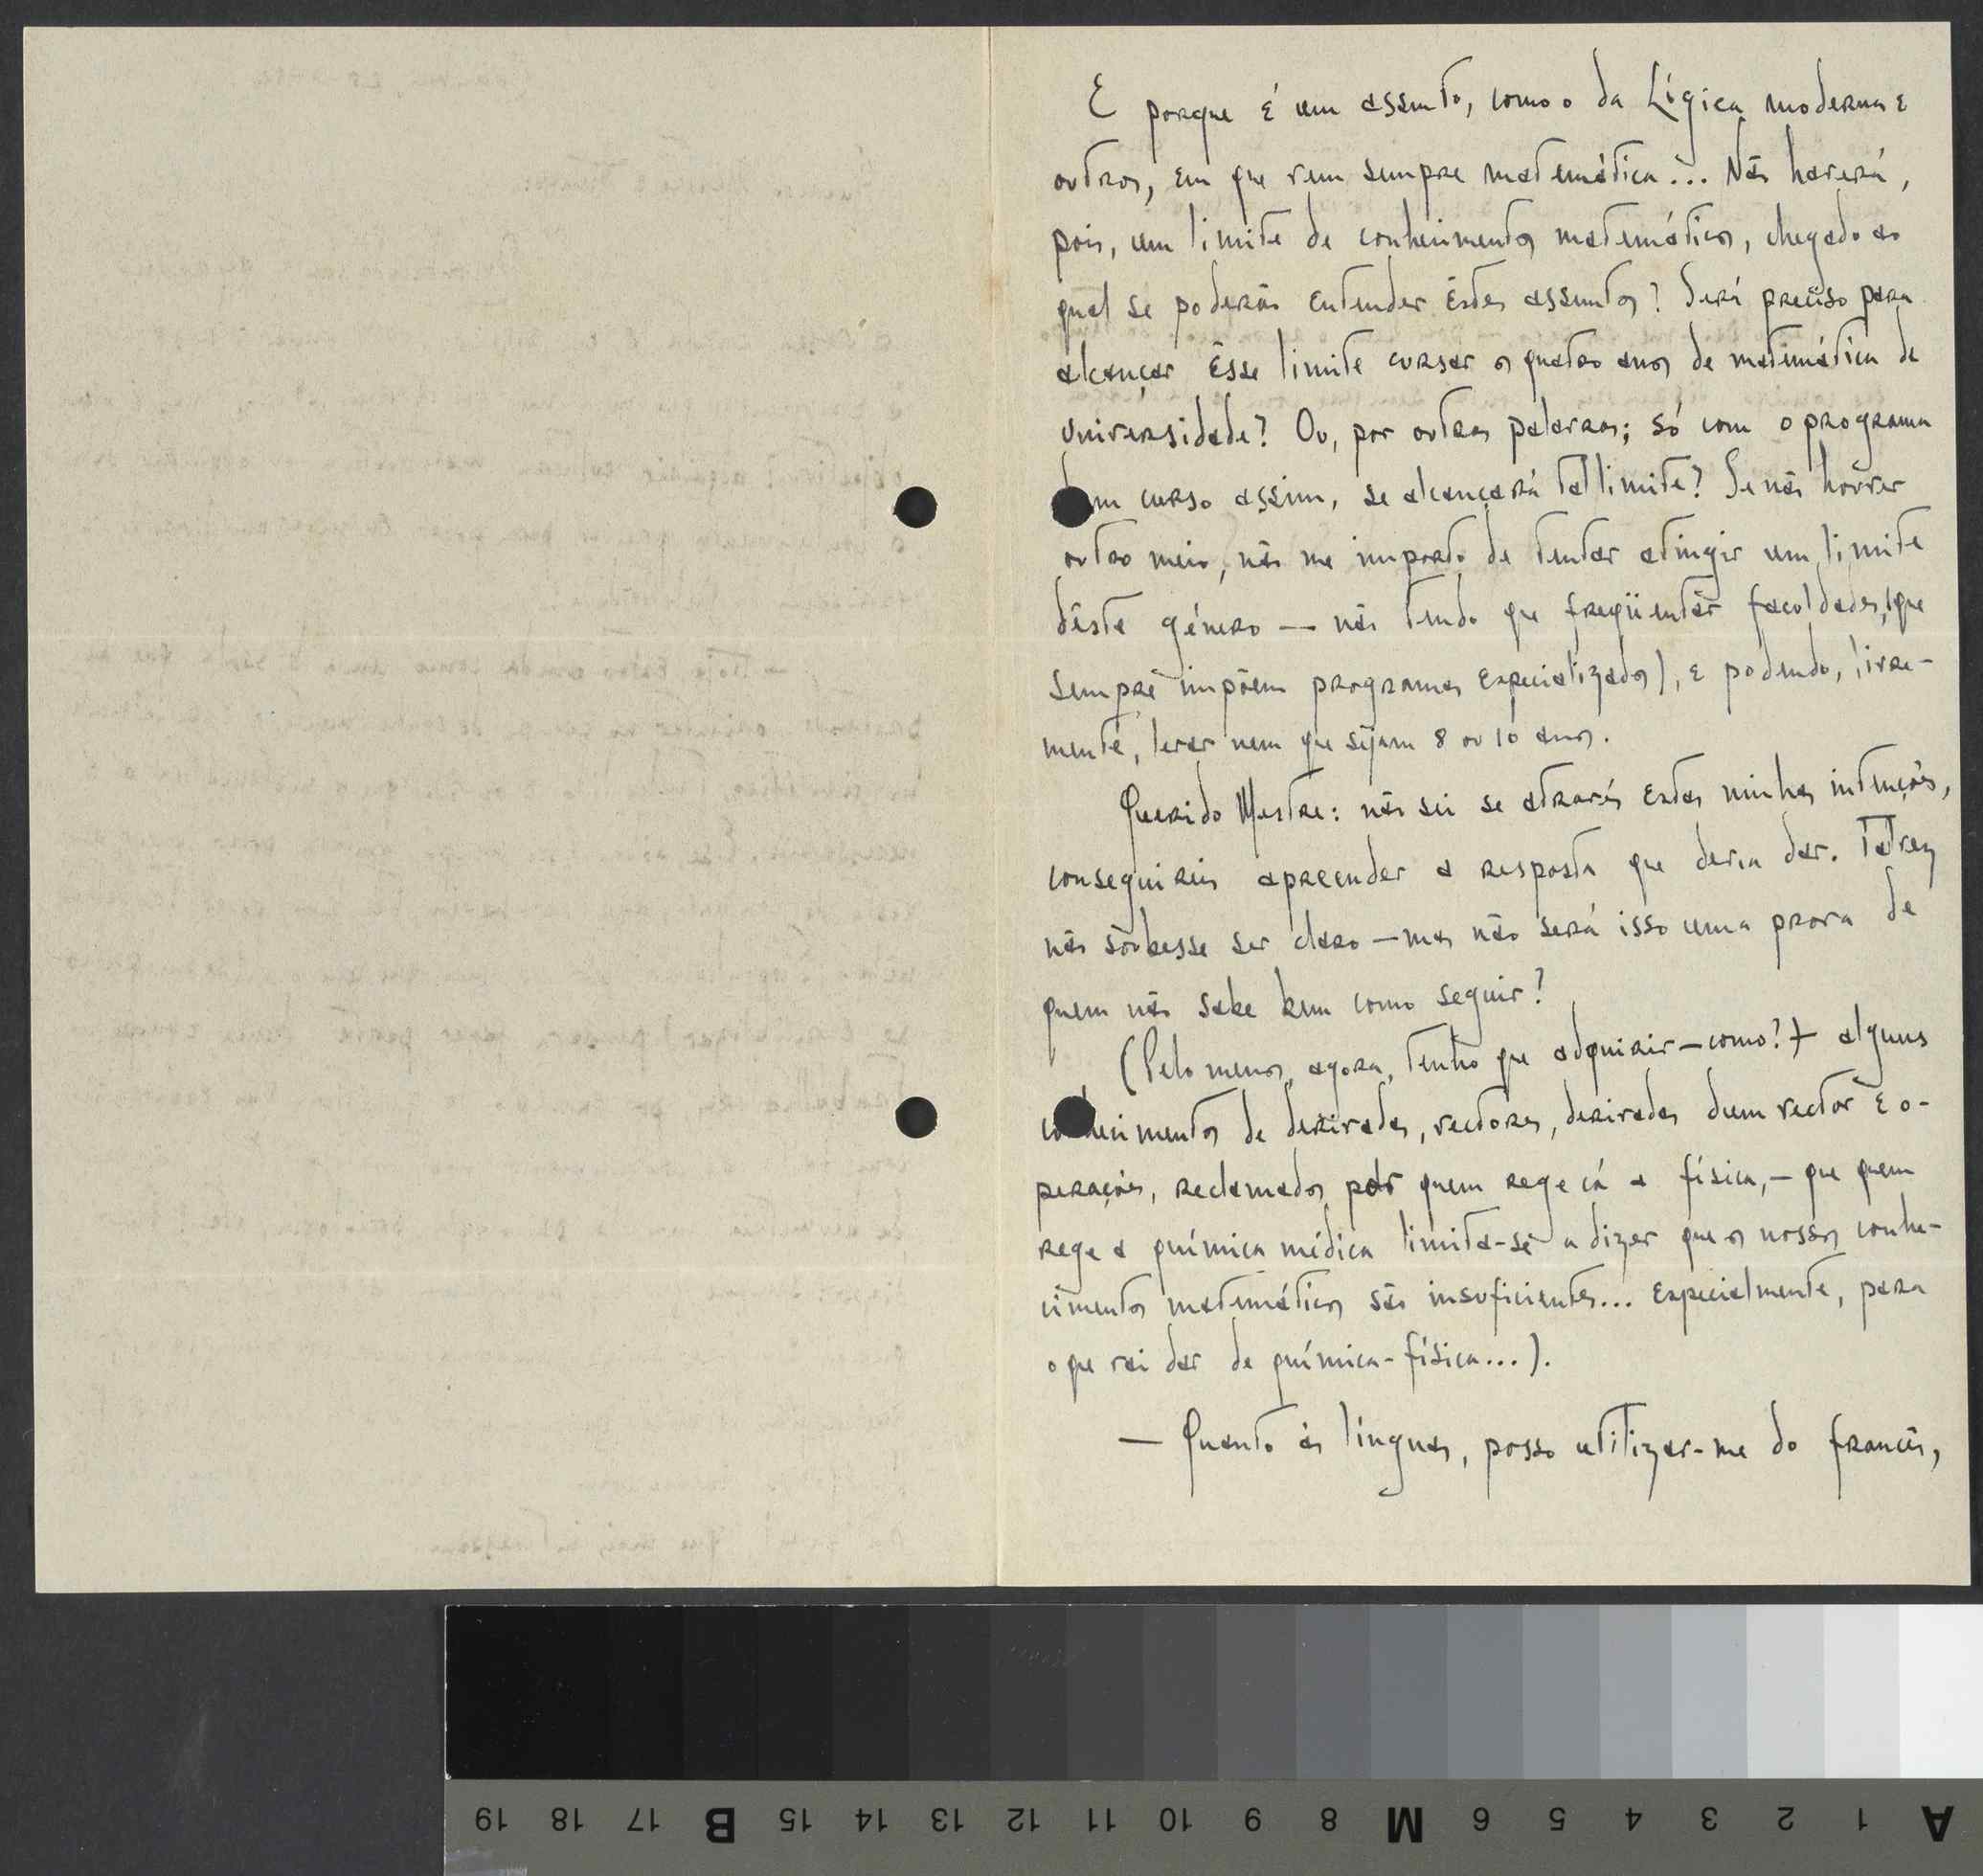 E porque é um assunto, como o da Lógica moderna e
outros, em que vem sempre matemática... Não haverá,
pois, um limite de conhecimentos matemáticos, chegado ao
qual se poderão entender êstes assuntos? Será preciso para
alcançar êsse limite cursar os quatro anos de matemática da
Universidade? Ou, por outras palavras; só com o programa
dum curso assim, se alcançará tal limite? Se não houver
outro meio, não me importo de tentar atingir um limite
dêste género — não tendo que freqüentar faculdades, (que
sempre impõem programas especializados), e podendo, livre-
mente, levar nem que sejam 8 ou 10 anos.
Querido Mestre: não sei se através estas minhas intenções,
conseguireis apreender a resposta que devia dar. Talvez
não soubesse ser claro — mas não será isso uma prova de
quem não sabe bem como seguir?
(Pelo menos, agora, tenho que adquirir — como? — alguns
conhecimentos de derivadas, vectores, derivadas dum vector e o-
perações, reclamados por quem rege cá a física, — que quem
rege a química médica limita-se a dizer que os nossos conhe-
cimentos matemáticos são insuficientes... especialmente, para
o que vai dar de química-física...).
— Quanto às línguas, posso utilizar-me do francês,
A 1 2 3 4 5 6 M 8 9 10 11 12 13 14 15 B 17 18 19